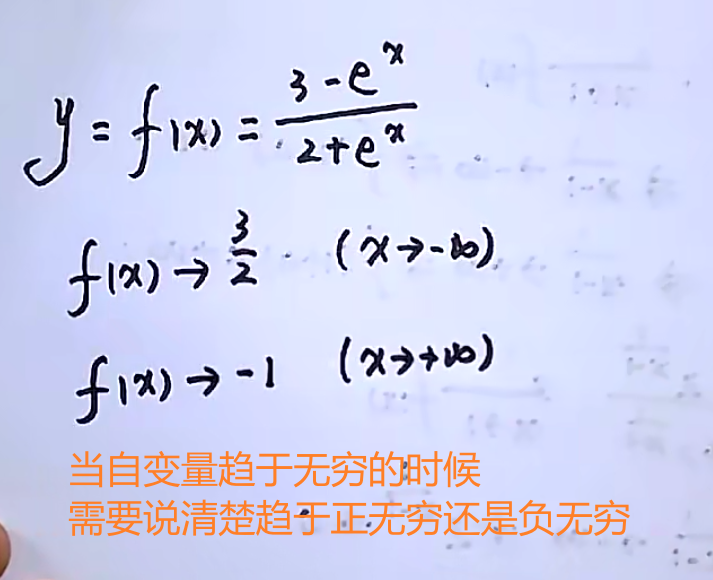 y = f(x) = \frac{3-e^x}{2+e^x}
f(x) → \frac{3}{2} (x→-∞)
f(x) → -1 (x→+∞)
当自变量趋于无穷的时候
需要说清楚趋于正无穷还是负无穷